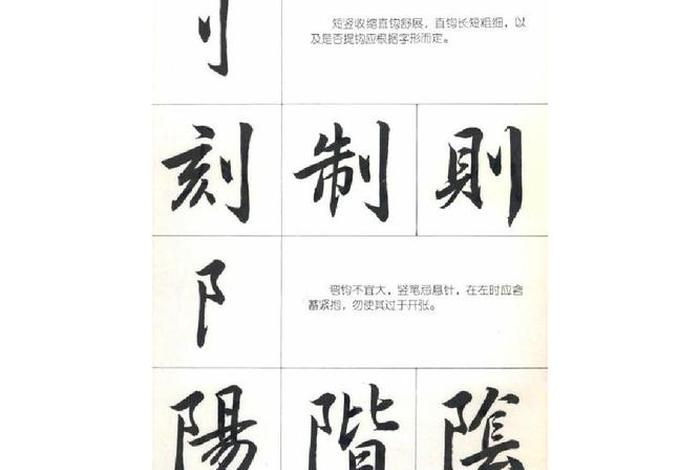 刂
短竖收缩直钩舒展，直钩长短粗细，以
及是否提钩应根据字形而定。
刻 制 則
阝
弯钩不宜大，竖笔忌悬针，在左时应含
蓄紧抱，勿使其过于开张。
陽 階 陰